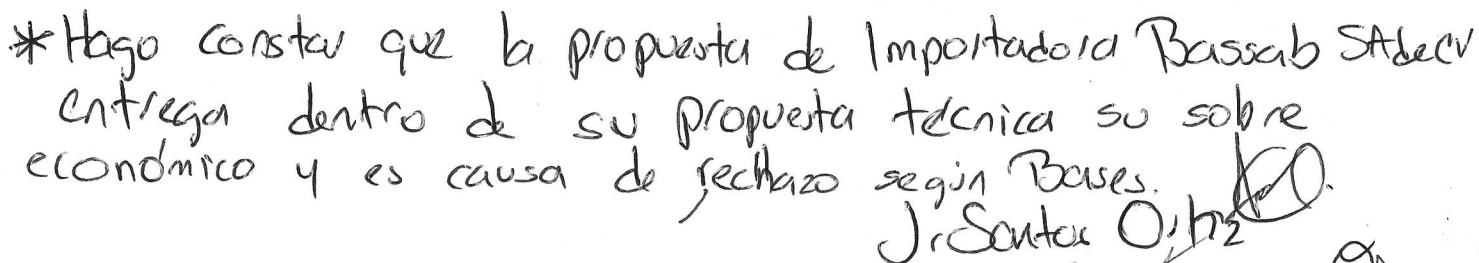 * Hago constar que la propuesta de Importadora Bassab SAdeCV
entrega dentro de su propuesta técnica su sobre
económico y es causa de rechazo según Bases.
J. Santos Ortiz